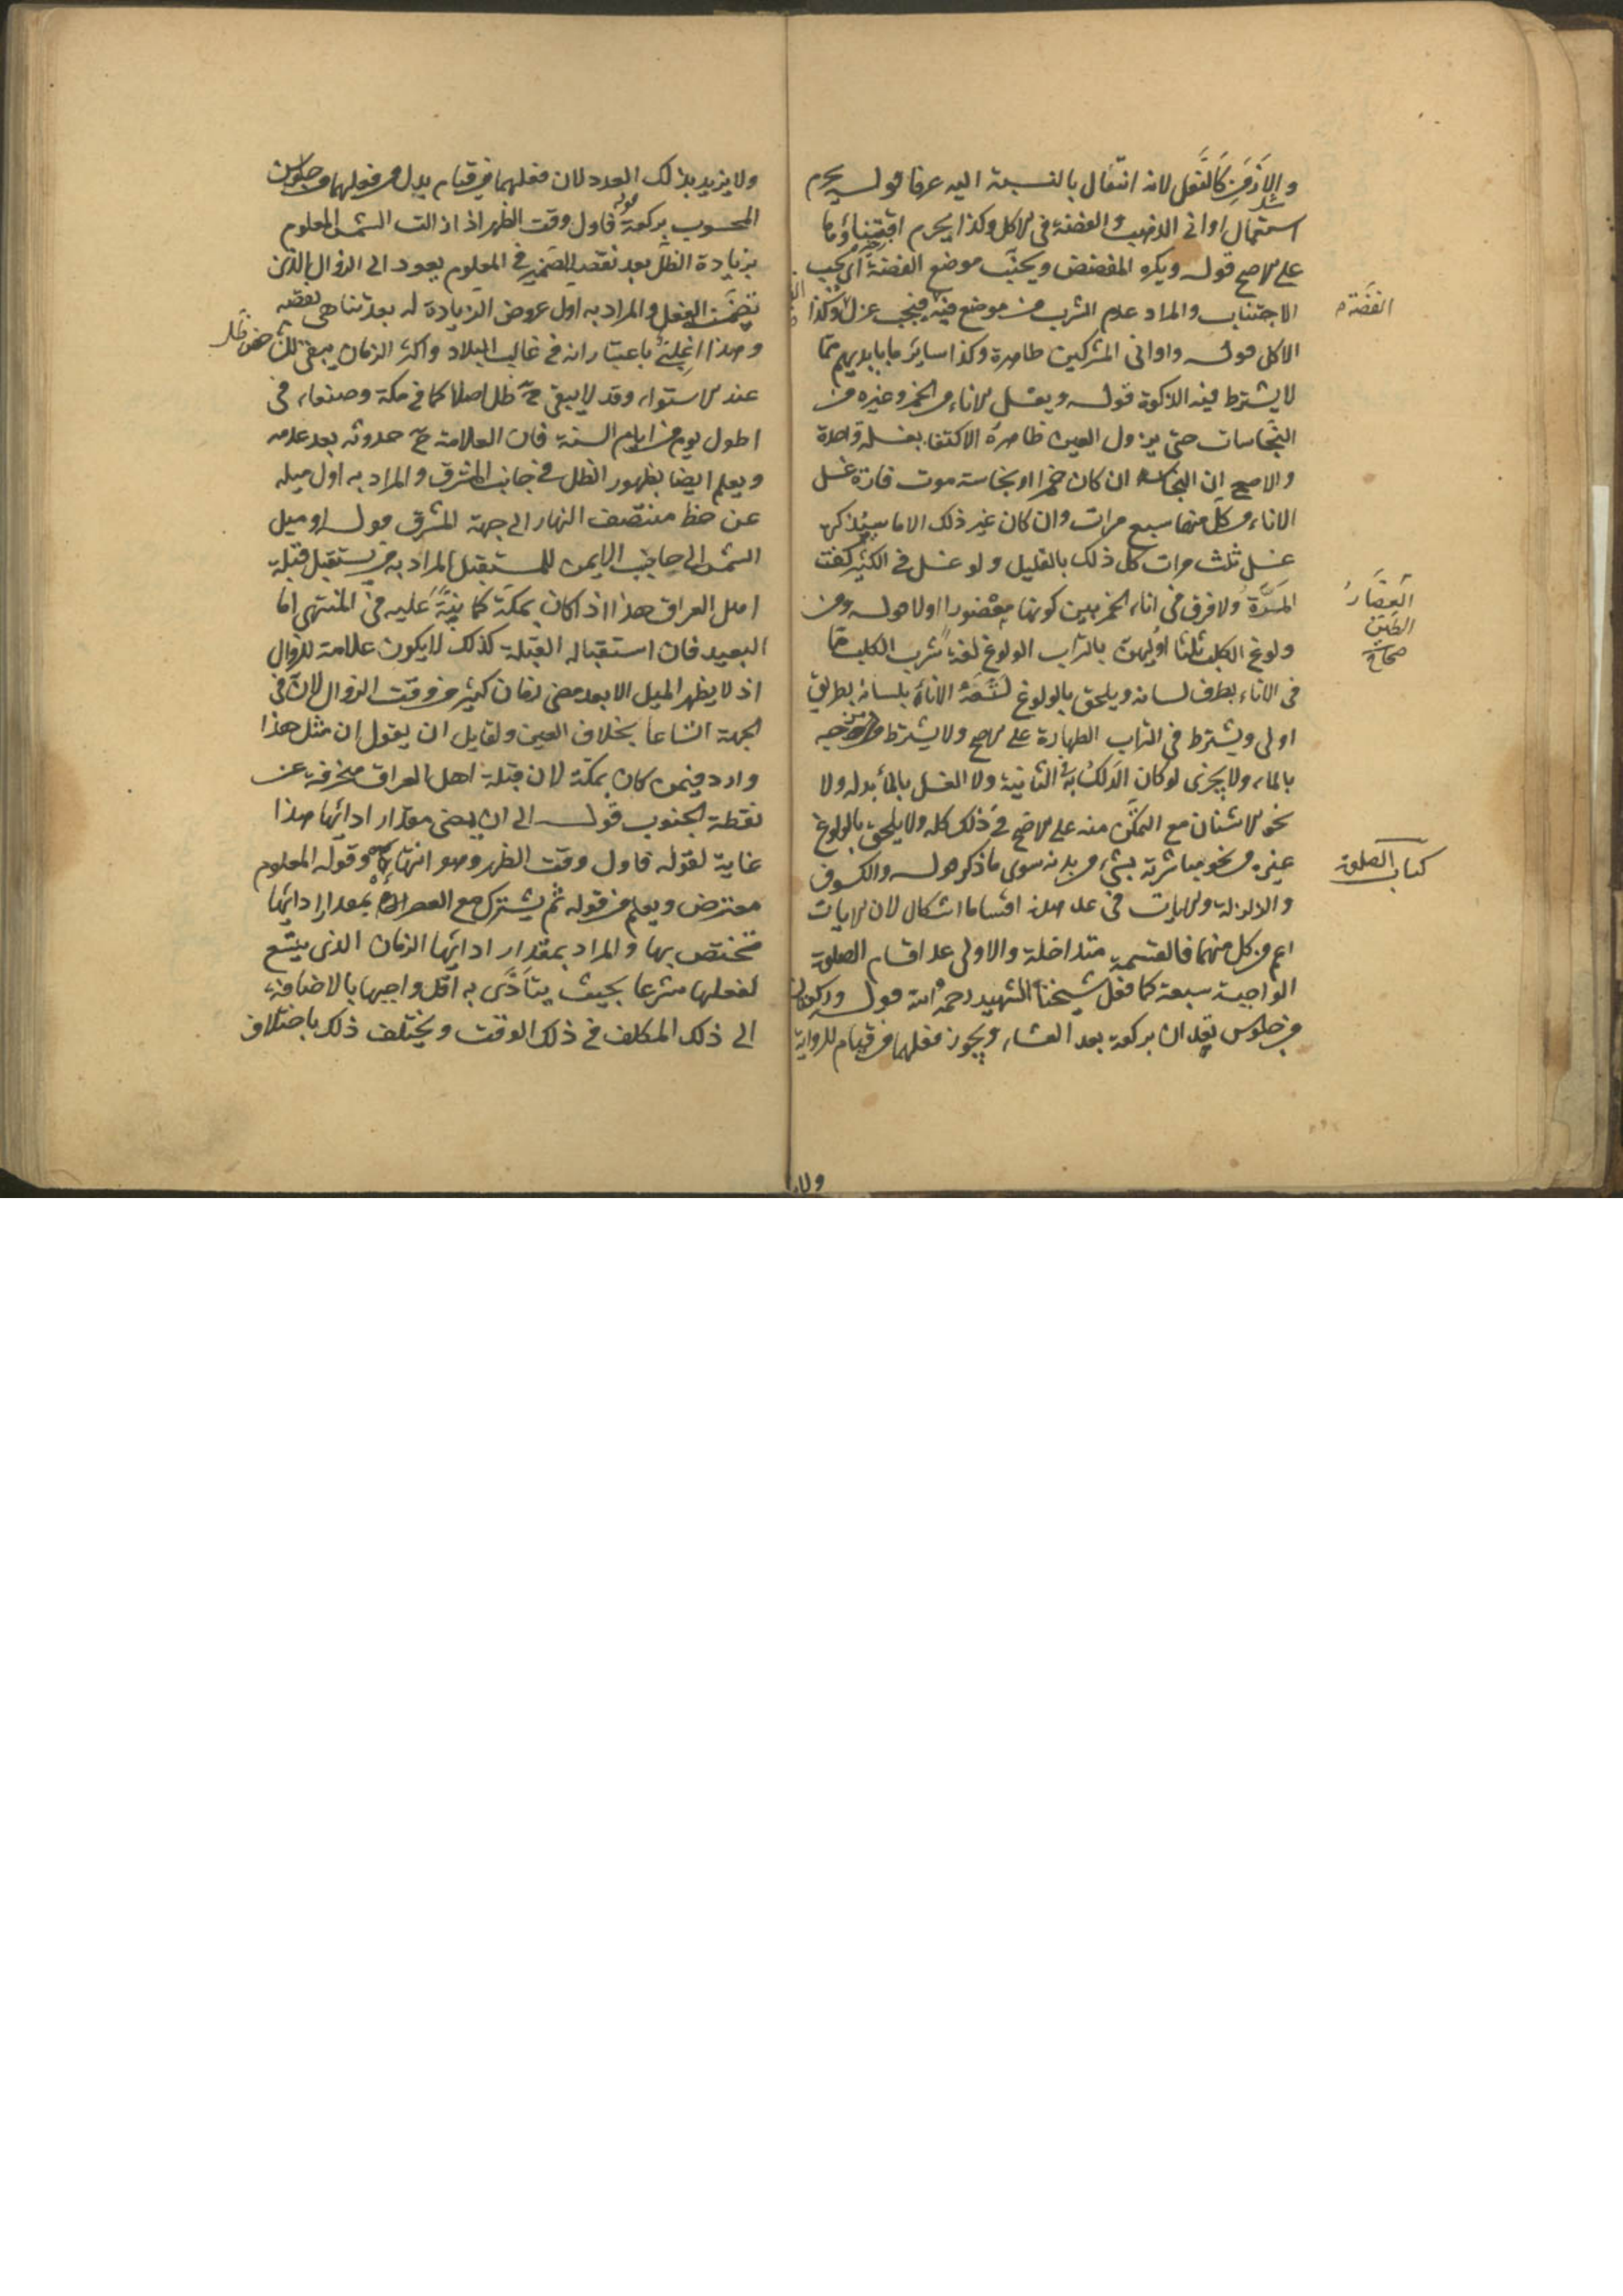 والارض كالنعل لانه انتقال بالنسبة اليه عرفا قوله يحرم
استعمال اواني الذهب والفضة في الاكل وكذا يحرم اقتناؤها
على الاصح قوله ويكره المفضض ويجنب موضع الفضة اى يجب
الاجتناب والمراد عدم الشرب من موضع فيه فيجب عزل وكذا
الفضة
الاكل قوله واوانى المشركين طاهرة وكذا ساير ما بايديهم مما
لا يشترط فيه الذكوة قوله ويغسل الاناء من الخمر وغيره من
النجاسات حتى يزول العين ظاهره الاكتفا بغسلة واحدة
والاصح ان النجاسة ان كان خمرا او نجاسته موت فارة غسل
الاناء من كل منها سبع مرات وان كان غير ذلك الا ما سيذكره
غسل ثلث مرات كل ذلك بالقليل ولو غسل في الكثير كفت
المرة ولا فرق فى اناء الخمر بين كونها مغضورا او لا قوله ومن
الغضار
الطين
صحاح
ولوغ الكلب ثلثا اوليهن بالتراب الولوغ لغة شرب الكلب مما
فى الاناء بطرف لسانه ويلحق بالولوغ لطعه الاناء بلسانه بطريق
اولى ويشترط فى التراب الطهارة على الاصح ولا يشترط مزجه
بالماء ولا يجزى لو كان الدلك به في الثانية ولا الغسل بالماء بدله ولا
نحو الاشنان مع التمكن منه على الاصح في ذلك كله ولا يلحق بالولوغ
غيره من نحو مباشرته بشىء من بدنه سوى ما ذكر قوله والكسوف
كتاب الصلوة
والزلزلة والايات فى عد هذه اقساما اشكال لان الايات
اعم من كل منهما فالقسمة متداخلة والاولى عد اقسام الصلوة
الواجبة سبعة كما فعل شيخنا الشهيد رحمه الله قوله وركعتان
من جلوس تعدان بركعة بعد العشاء ويجوز فعلهما من قيام للرواية
ولا
ولا يزيد بذلك العدد لان فعلهما من قيام بدل من فعلهما من جلوس
المحسوب بركعة قوله فاول وقت الظهر اذا زالت الشمس المعلوم
بزيادة الظل بعد نقصه الضمير في المعلوم يعود الى الزوال الذى
تضمنه الفعل والمراد به اول عروض الزيادة له بعد تناهى نقصه
وهذا اغلبي باعتبار انه في غالب البلاد واكثر الزمان يبقى للشاخص ظل
عند الاستواء وقد لا يبقى ح ظل اصلا كما في مكة وصنعاء فى
اطول يوم من ايام السنة فان العلامة ح حدوثه بعد عدمه
ويعلم ايضا بظهور الظل في جانب المشرق والمراد به اول ميله
عن خط منتصف النهار الى جهة المشرق قوله او ميل
الشمس الى حاجب الايمن للمستقبل المراد به من يستقبل قبلة
اهل العراق هذا اذا كان بمكة كما نبه عليه فى المنتهى اما
البعيد فان استقباله القبلة كذلك لا يكون علامة للزوال
اذ لا يظهر الميل الا بعد مضى زمان كثير من وقت الزوال لان فى
الجهة اتساعا بخلاف العين ولقايل ان يقول ان مثل هذا
وارد فيمن كان بمكة لان قبلة اهل العراق منحرفة عن
نقطة الجنوب قوله الى ان يمضى مقدار ادائها هذا
غاية لقوله فاول وقت الظهر وهو انتهاء وقوله المعلوم
معترض ويعلم من قوله ثم يشترك مع العصر بمقدار ادائها
تختص بها والمراد بمقدار ادائها الزمان الذى يتسع
لفعلها شرعا بحيث يتادى به اقل واجبها بالاضافة
الى ذلك المكلف في ذلك الوقت ويختلف ذلك باختلاف